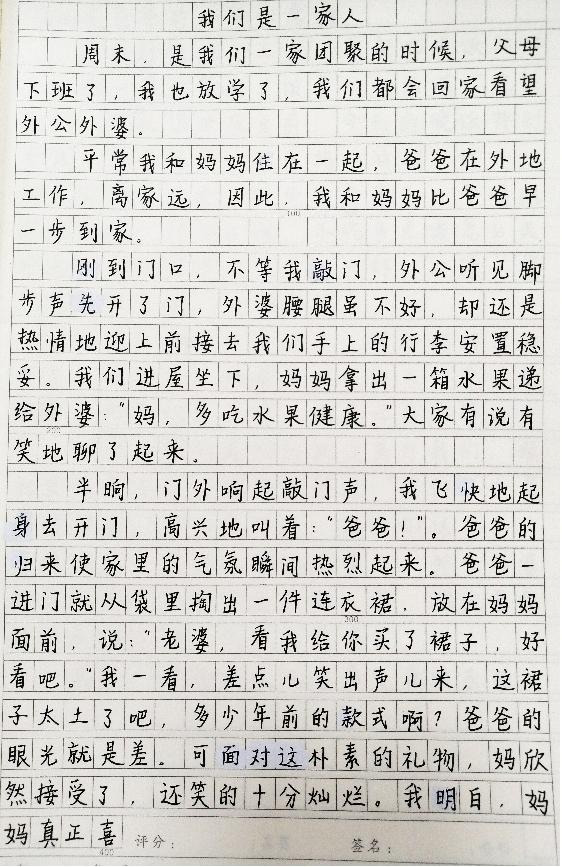 我们是一家人
周末，是我们一家团聚的时候，父母
下班了，我也放学了，我们都会回家看望
外公外婆。
平常我和妈妈住在一起，爸爸在外地
工作，离家远，因此，我和妈妈比爸爸早
100
一步到家。
刚到门口，不等我敲门，外公听见脚
步声先开了门，外婆腰腿虽不好，却还是
热情地迎上前接去我们手上的行李安置稳
妥。我们进屋坐下，妈妈拿出一箱水果递
给外婆：“妈，多吃水果健康。”大家有说有
200
笑地聊了起来。
半晌，门外响起敲门声，我飞快地起
身去开门，高兴地叫着：“爸爸！”。爸爸的
归来使家里的气氛瞬间热烈起来。爸爸一
进门就从袋里掏出一件连衣裙，放在妈妈
300
面前，说：“老婆，看我给你买了裙子，好
看吧。”我一看，差点儿笑出声儿来，这裙
子太土了吧，多少年前的款式啊？爸爸的
眼光就是差。可面对这朴素的礼物，妈欣
然接受了，还笑的十分灿烂。我明白，妈
妈真正喜
400
评分：
签名：